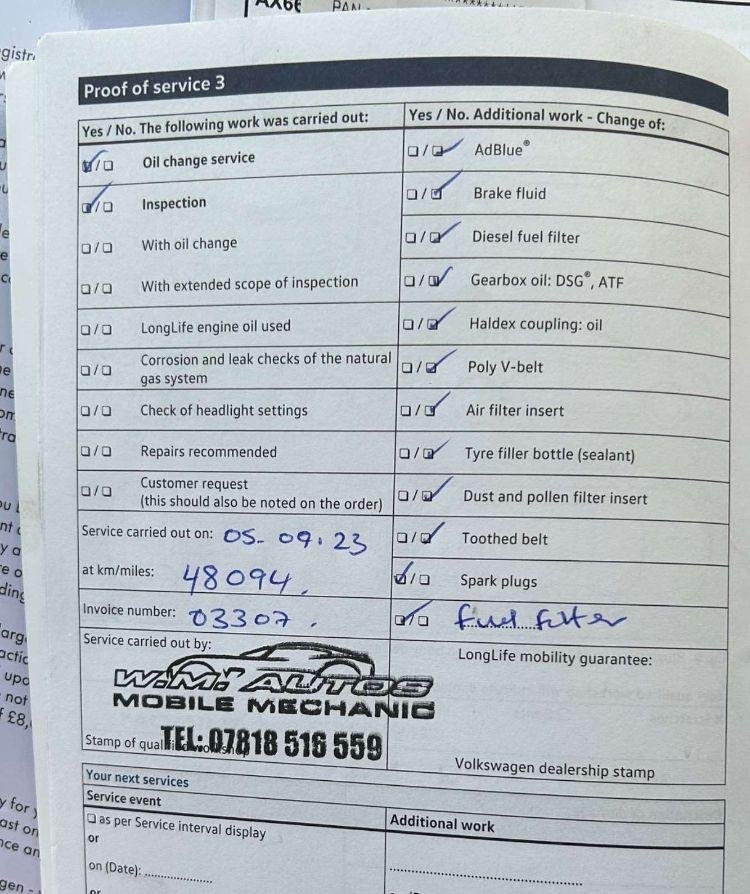 AX66
PAN
Proof of service 3
Yes / No. The following work was carried out:
Oil change service
Inspection
With oil change
With extended scope of inspection
LongLife engine oil used
Corrosion and leak checks of the natural
gas system
Check of headlight settings
Repairs recommended
Customer request
(this should also be noted on the order)
Service carried out on: 05-09.23
at km/miles: 48094.
Invoice number: 03307.
Service carried out by:
W.M. AUTOS
MOBILE MECHANIC
TEL: 07818 516 559
Stamp of qualified workshop
Yes / No. Additional work - Change of:
AdBlue®
Brake fluid
Diesel fuel filter
Gearbox oil: DSG®, ATF
Haldex coupling: oil
Poly V-belt
Air filter insert
Tyre filler bottle (sealant)
Dust and pollen filter insert
Toothed belt
Spark plugs
fuel filter
LongLife mobility guarantee:
Volkswagen dealership stamp
Your next services
Service event
as per Service interval display
or
on (Date): ..................
or
Additional work